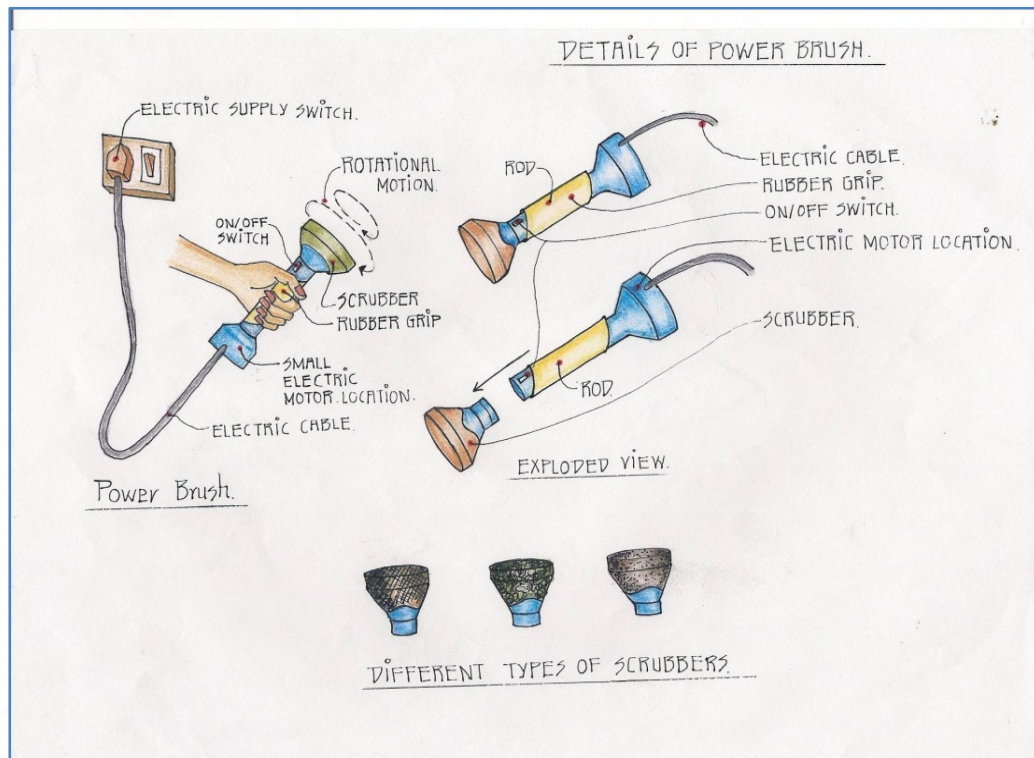 DETAILS OF POWER BRUSH.
ELECTRIC SUPPLY SWITCH.
ROTATIONAL
MOTION.
ON/OFF
SWITCH
SCRUBBER
RUBBER GRIP
SMALL
ELECTRIC
MOTOR LOCATION.
ELECTRIC CABLE.
Power Brush.
ROD
ELECTRIC CABLE.
RUBBER GRIP.
ON/OFF SWITCH.
ELECTRIC MOTOR LOCATION.
SCRUBBER.
ROD.
EXPLODED VIEW.
DIFFERENT TYPES OF SCRUBBERS.